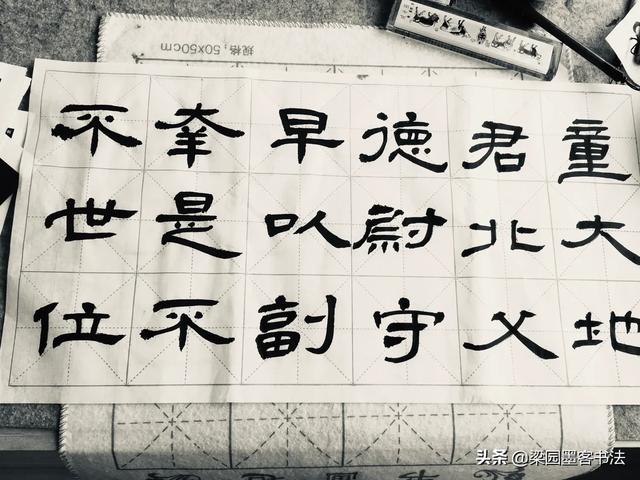 不幸早德君童
世是以尉北大
位不副守父地
规格:50×50cm
头条 @梁园墨客书法